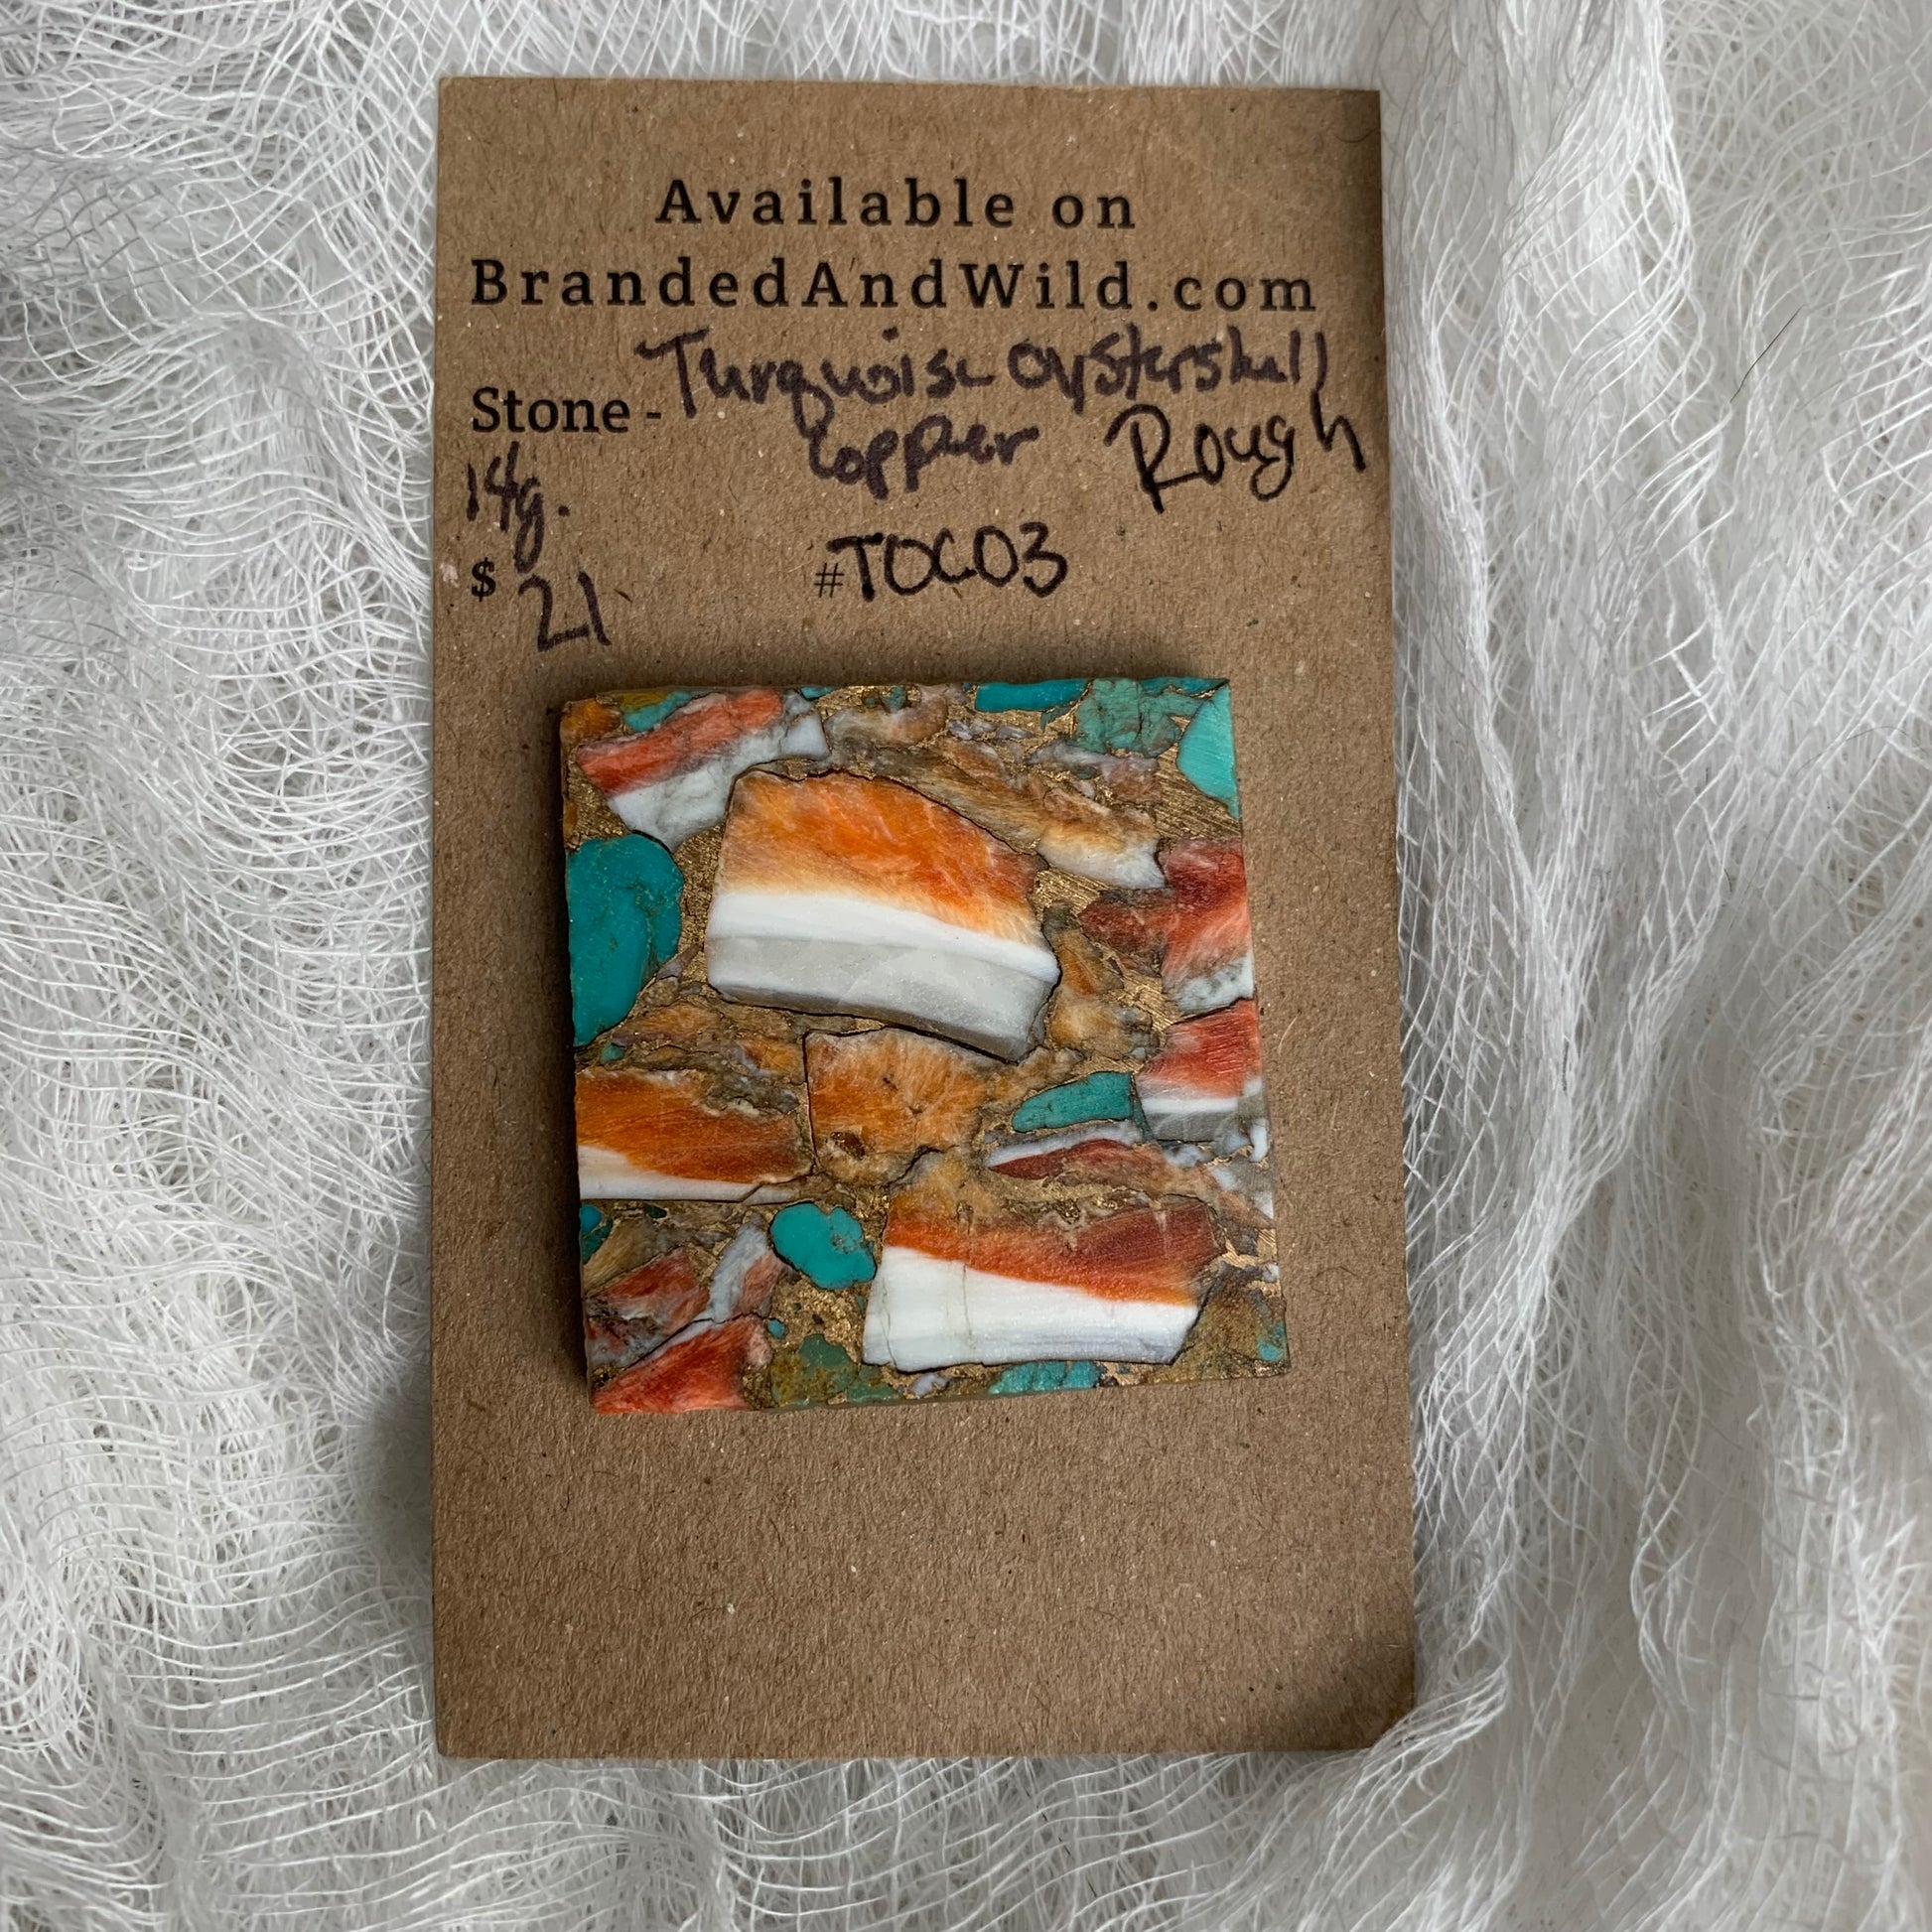 Available on
BrandedAndWild.com
Turquoise Oystershell
Stone -
Copper Rough
14g.
#TOC03
$ 21